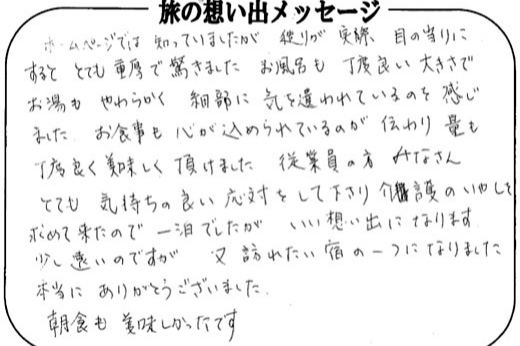 旅の想い出メッセージ
ホームページでは 知っていましたが 造りが 実際 目の当りに
すると とても 重厚で 驚きました お風呂も 丁度良い 大きさで
お湯も やわらかく 細部に 気を遣われているのを 感じ
ました お食事も 心が込められているのが 伝わり 量も
丁度良く 美味しく 頂けました 従業員の方 みなさん
とても 気持ちの良い 応対を して下さり 介護の いやしを
求めて 来たので 一泊でしたが いい 想い出に なります
少し 遠いのですが 又 訪れたい 宿の 一つに なりました
本当に ありがとうございました.
朝食も 美味しかったです